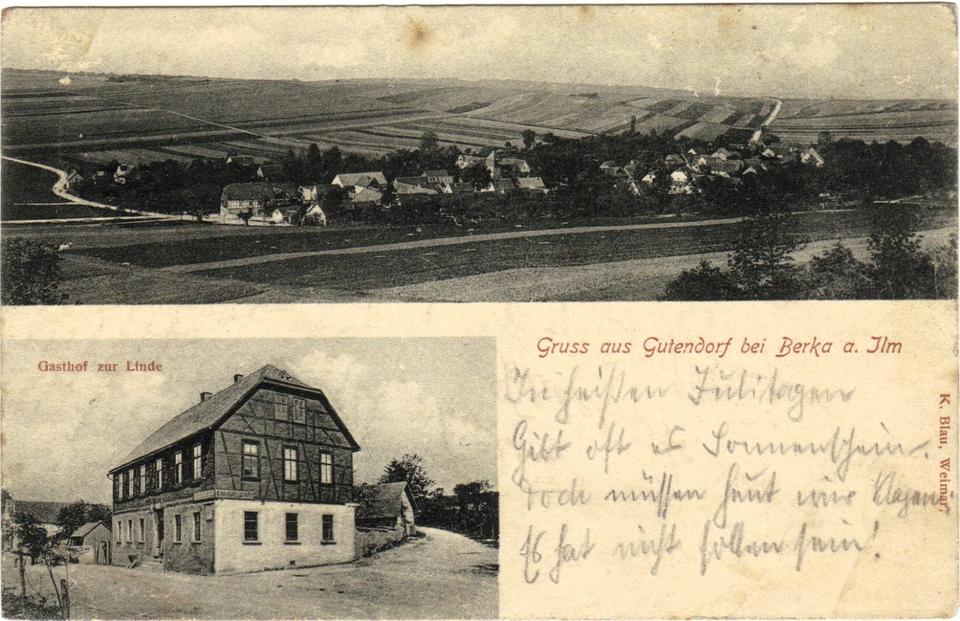 Gasthof zur Linde
Gruss aus Gutendorf bei Berka a. Ilm
In heißen Julitagen
Gibt oft es Sonnenschein.
Doch müssen heut wir klagen
Es hat nicht sollen sein!
K. Blau, Weimar